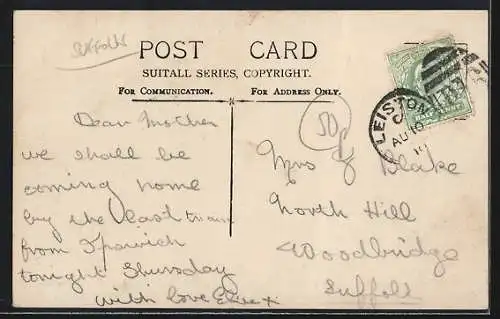 Suffolk
POST CARD
SUITALL SERIES, COPYRIGHT.
FOR COMMUNICATION.
FOR ADDRESS ONLY.
50p
LEISTON
AU 10
183
Dear Mother
we shall be
coming home
by the last train
from Ipswich
tonight Thursday
with love Elsie x
Mrs J Blake
North Hill
Woodbridge
Suffolk